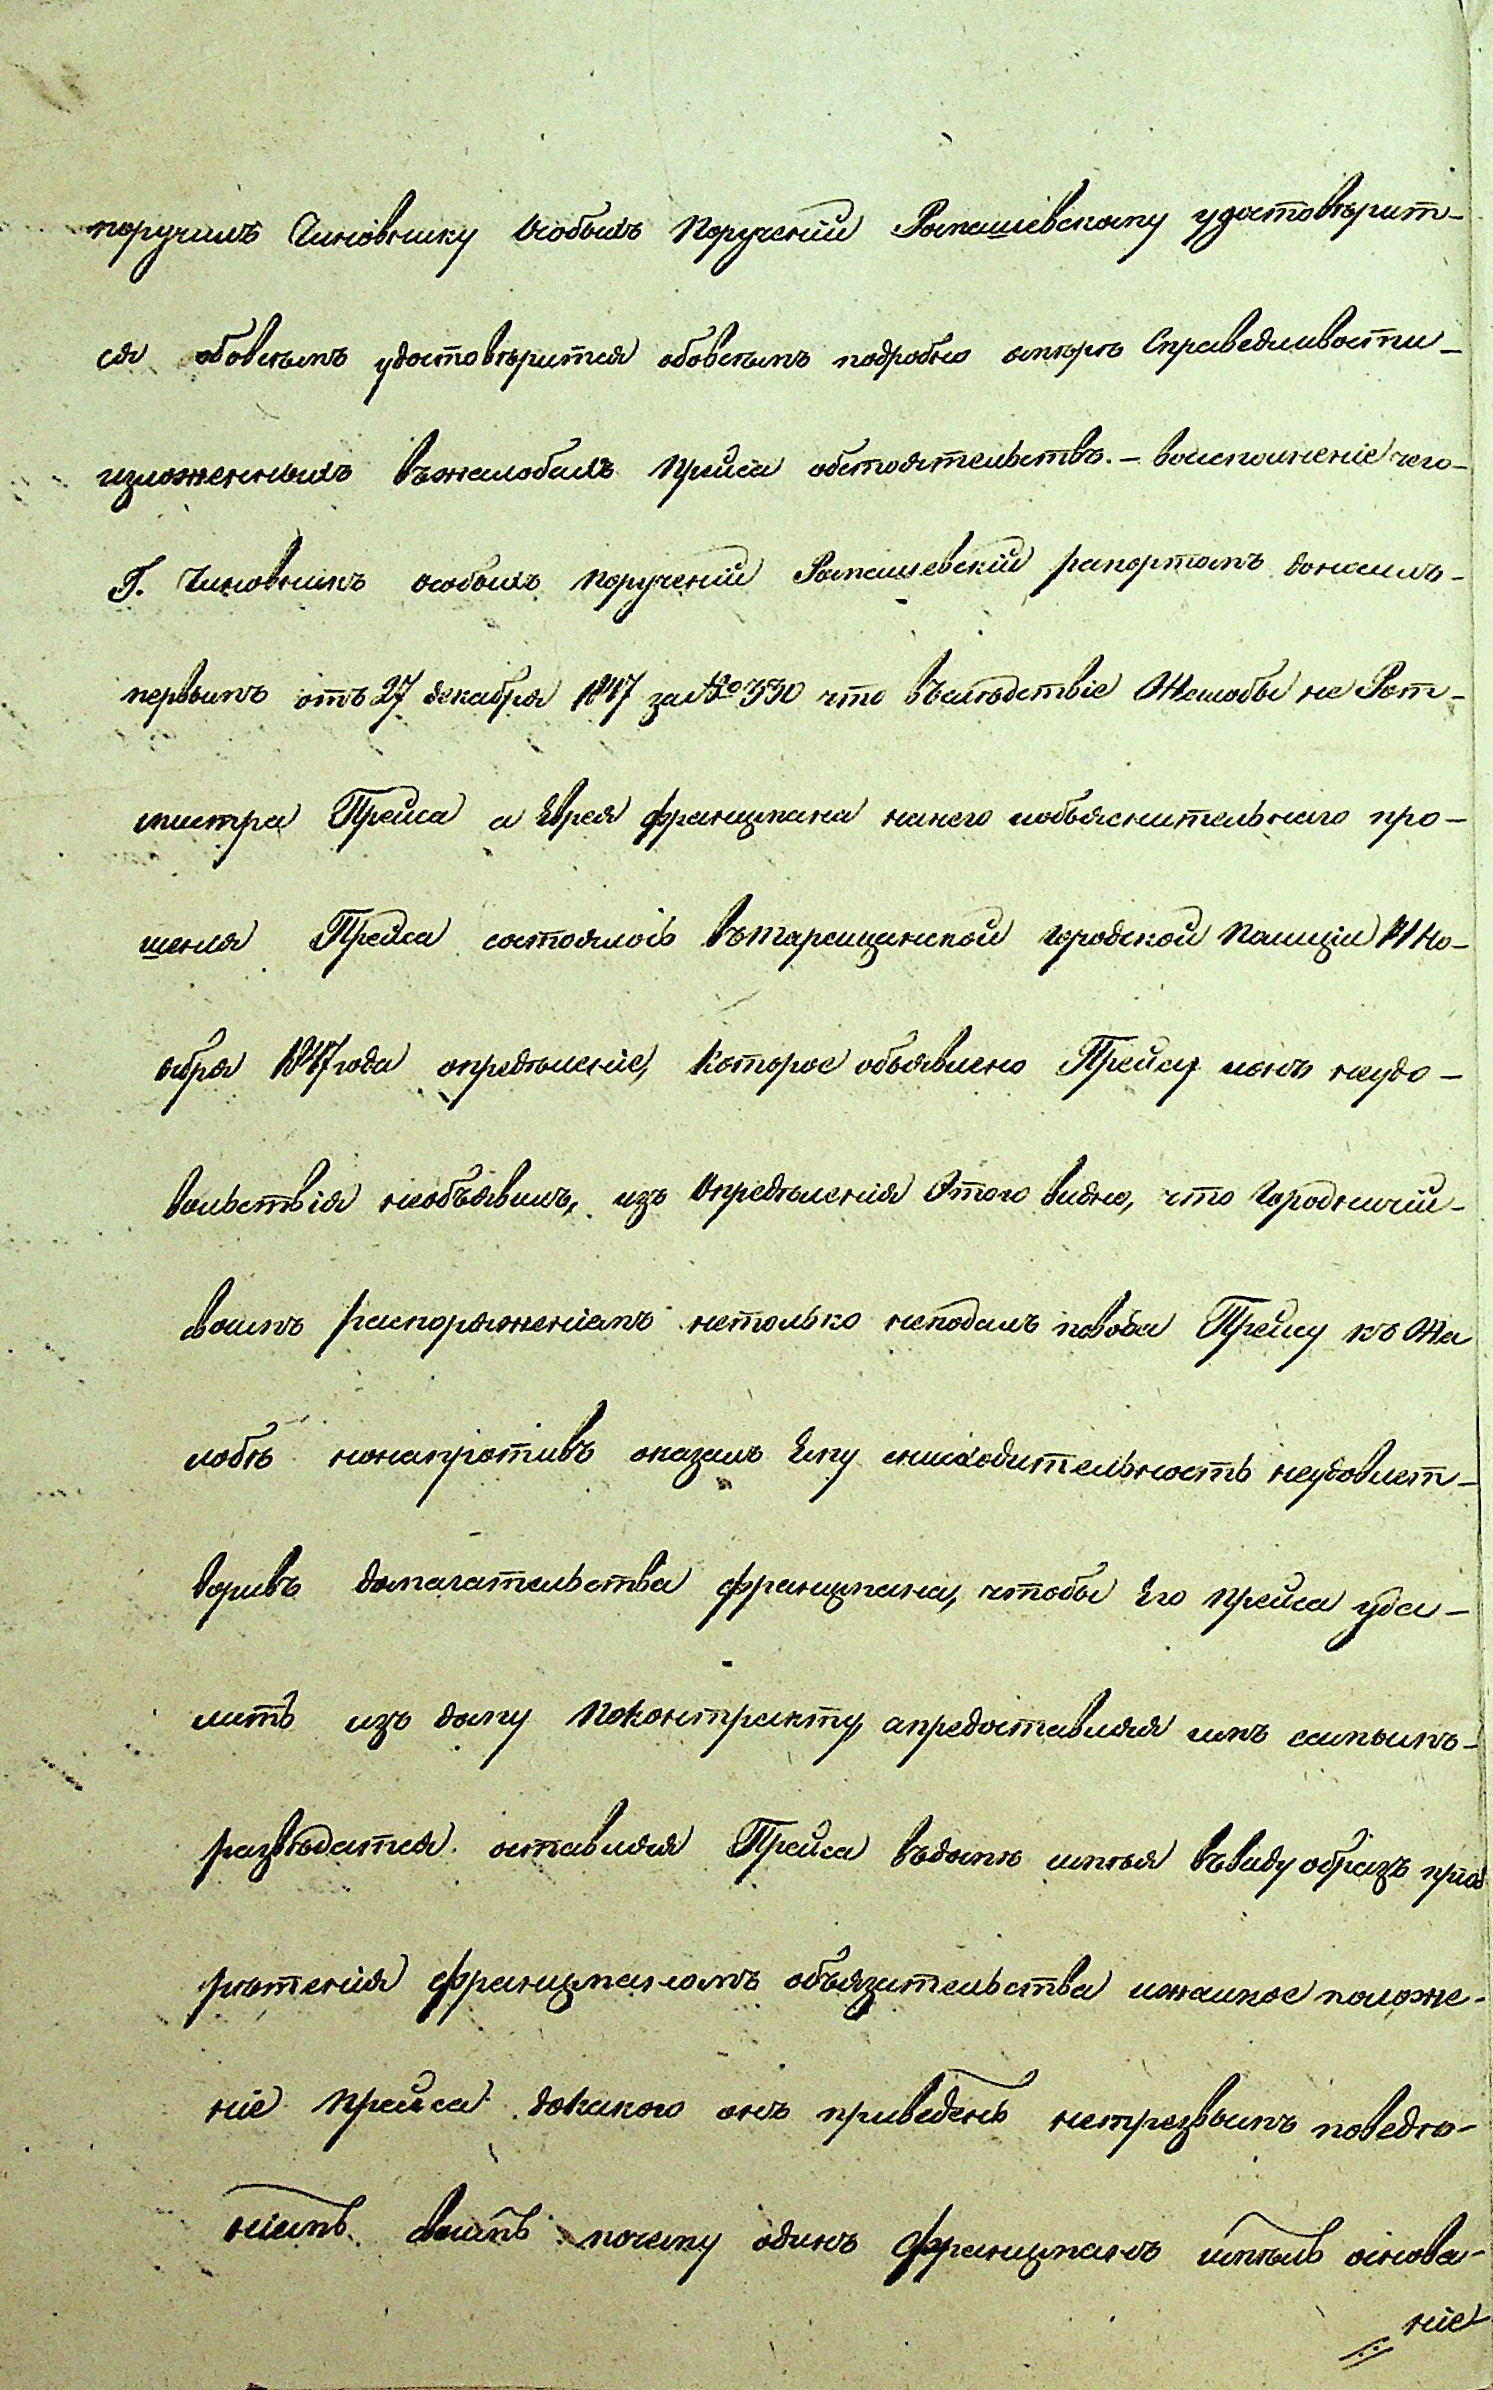 поручилъ Чиновнику Особыхъ Порученій Ромашевскому удостовѣрит-
ся обовсемъ удостовѣрится обовсемъ подробно Справедливости-
изложенныхъ въжалобахъ Прейса обстоятельствъ. - воисполненіе чего-
Г. Чиновникъ особыхъ порученій Ромашевскій рапортомъ доноситъ-
первымъ отъ 27 декабря 1847 за № 390 что въслѣдствіе Жалобы не Рот-
мистра Прейса а Еврея Францмана нанего иобъяснительнаго про-
шенія Прейса состоялось вътаращанской городской Полиціи 11 Но-
ября 1847 года опредѣленіе, Которое объявлено Прейсу ионъ неудо-
вольствія необъявилъ, изъ Опредѣленія Этого видно, что Городничій-
своимъ распоряженіемъ нетолько неподалъ повода Прейсу къ Жа
лобѣ нонапротивъ оказалъ Ему снисходительность неудовлет-
воривъ домагательства Францмана, чтобы Его Прейса уда-
лить изъ дому Поконтракту, апредоставляя имъ самымъ-
развѣдатся оставляя Прейса въдомѣ имѣя въвиду образъ приоб
рѣтенія Францманомъ обязательства ижалкое положе-
ніе Прейса докакого онъ приведенъ нетрезвымъ поведе-
ніемъ своимъ почему одинъ Францманъ имѣлъ основа-
ніе